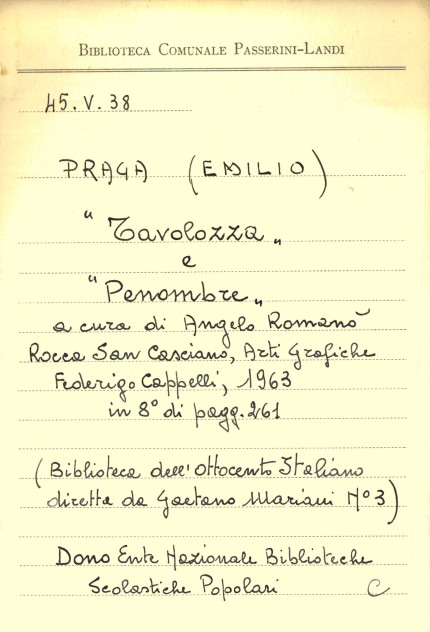 BIBLIOTECA COMUNALE PASSERINI-LANDI
45.V.38
PRAGA (EMILIO)
"Tavolozza"
e
"Penombre"
a cura di Angelo Romanò
Rocca San Casciano, Arti Grafiche
Federigo Cappelli, 1963
in 8° di pagg. 261
(Biblioteca dell'Ottocento Italiano
diretta da Gaetano Mariani N° 3)
Dono Ente Nazionale Biblioteche
Scolastiche Popolari C